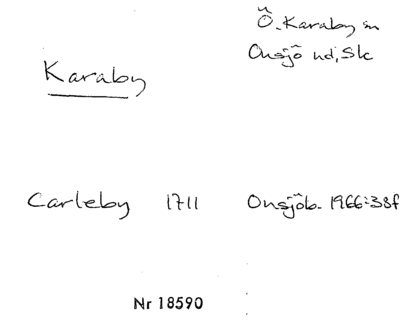 Ö. Karaby sn
Onsjö hd, Sk
Karaby
Carleby 1711 Onsjöb. 1966:38f
Nr 18590